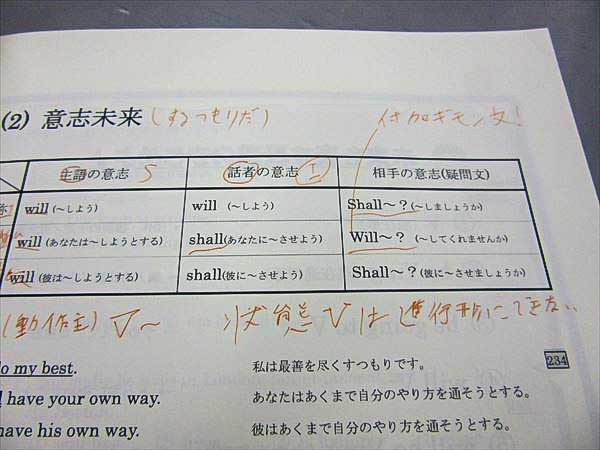 (2) 意志未来 (するつもりだ)
付加ギモン文!
主語の意志 S 話者の意志 I 相手の意志(疑問文)
称 will (～しよう) will (～しよう) Shall～? (～しましょうか)
will (あなたは～しようとする) shall(あなたに～させよう) Will～? (～してくれませんか)
will (彼は～しようとする) shall(彼に～させよう) Shall～? (彼に～させましょうか)
(動作主) V～ 状態Vは進行形にできない
do my best. 私は最善を尽くすつもりです。 234
have your own way. あなたはあくまで自分のやり方を通そうとする。
have his own way. 彼はあくまで自分のやり方を通そうとする。